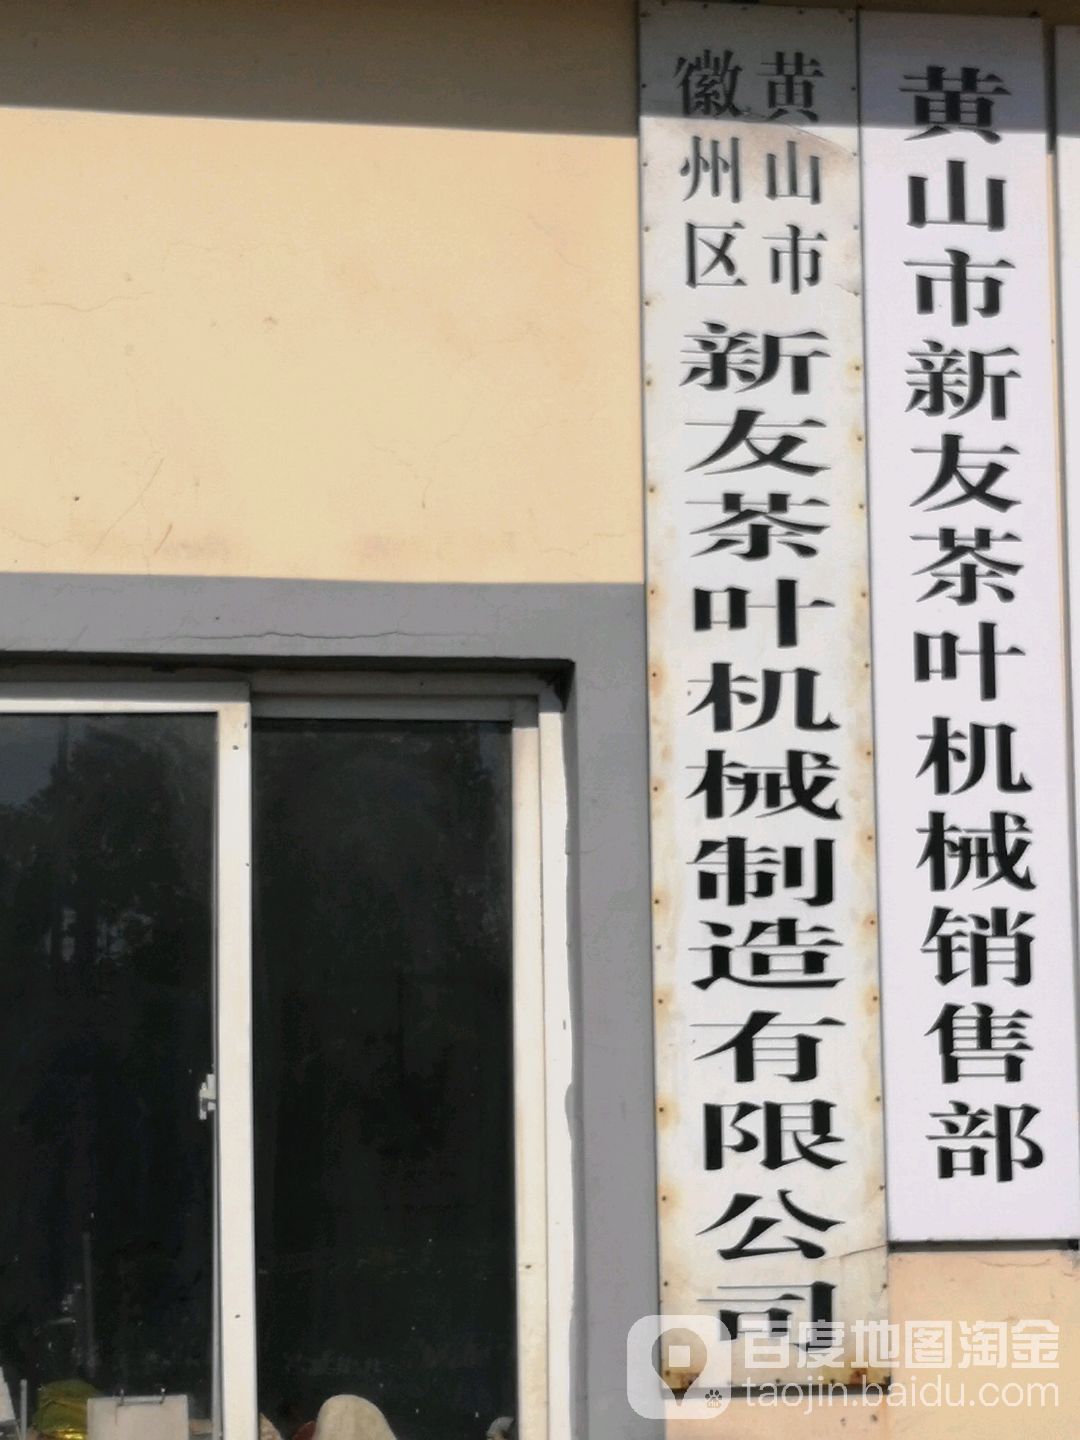 黄山市新友茶叶机械销售部
黄山市
徽州区
新友茶叶机械制造有限公司
百度地图淘金
taojin.baidu.com